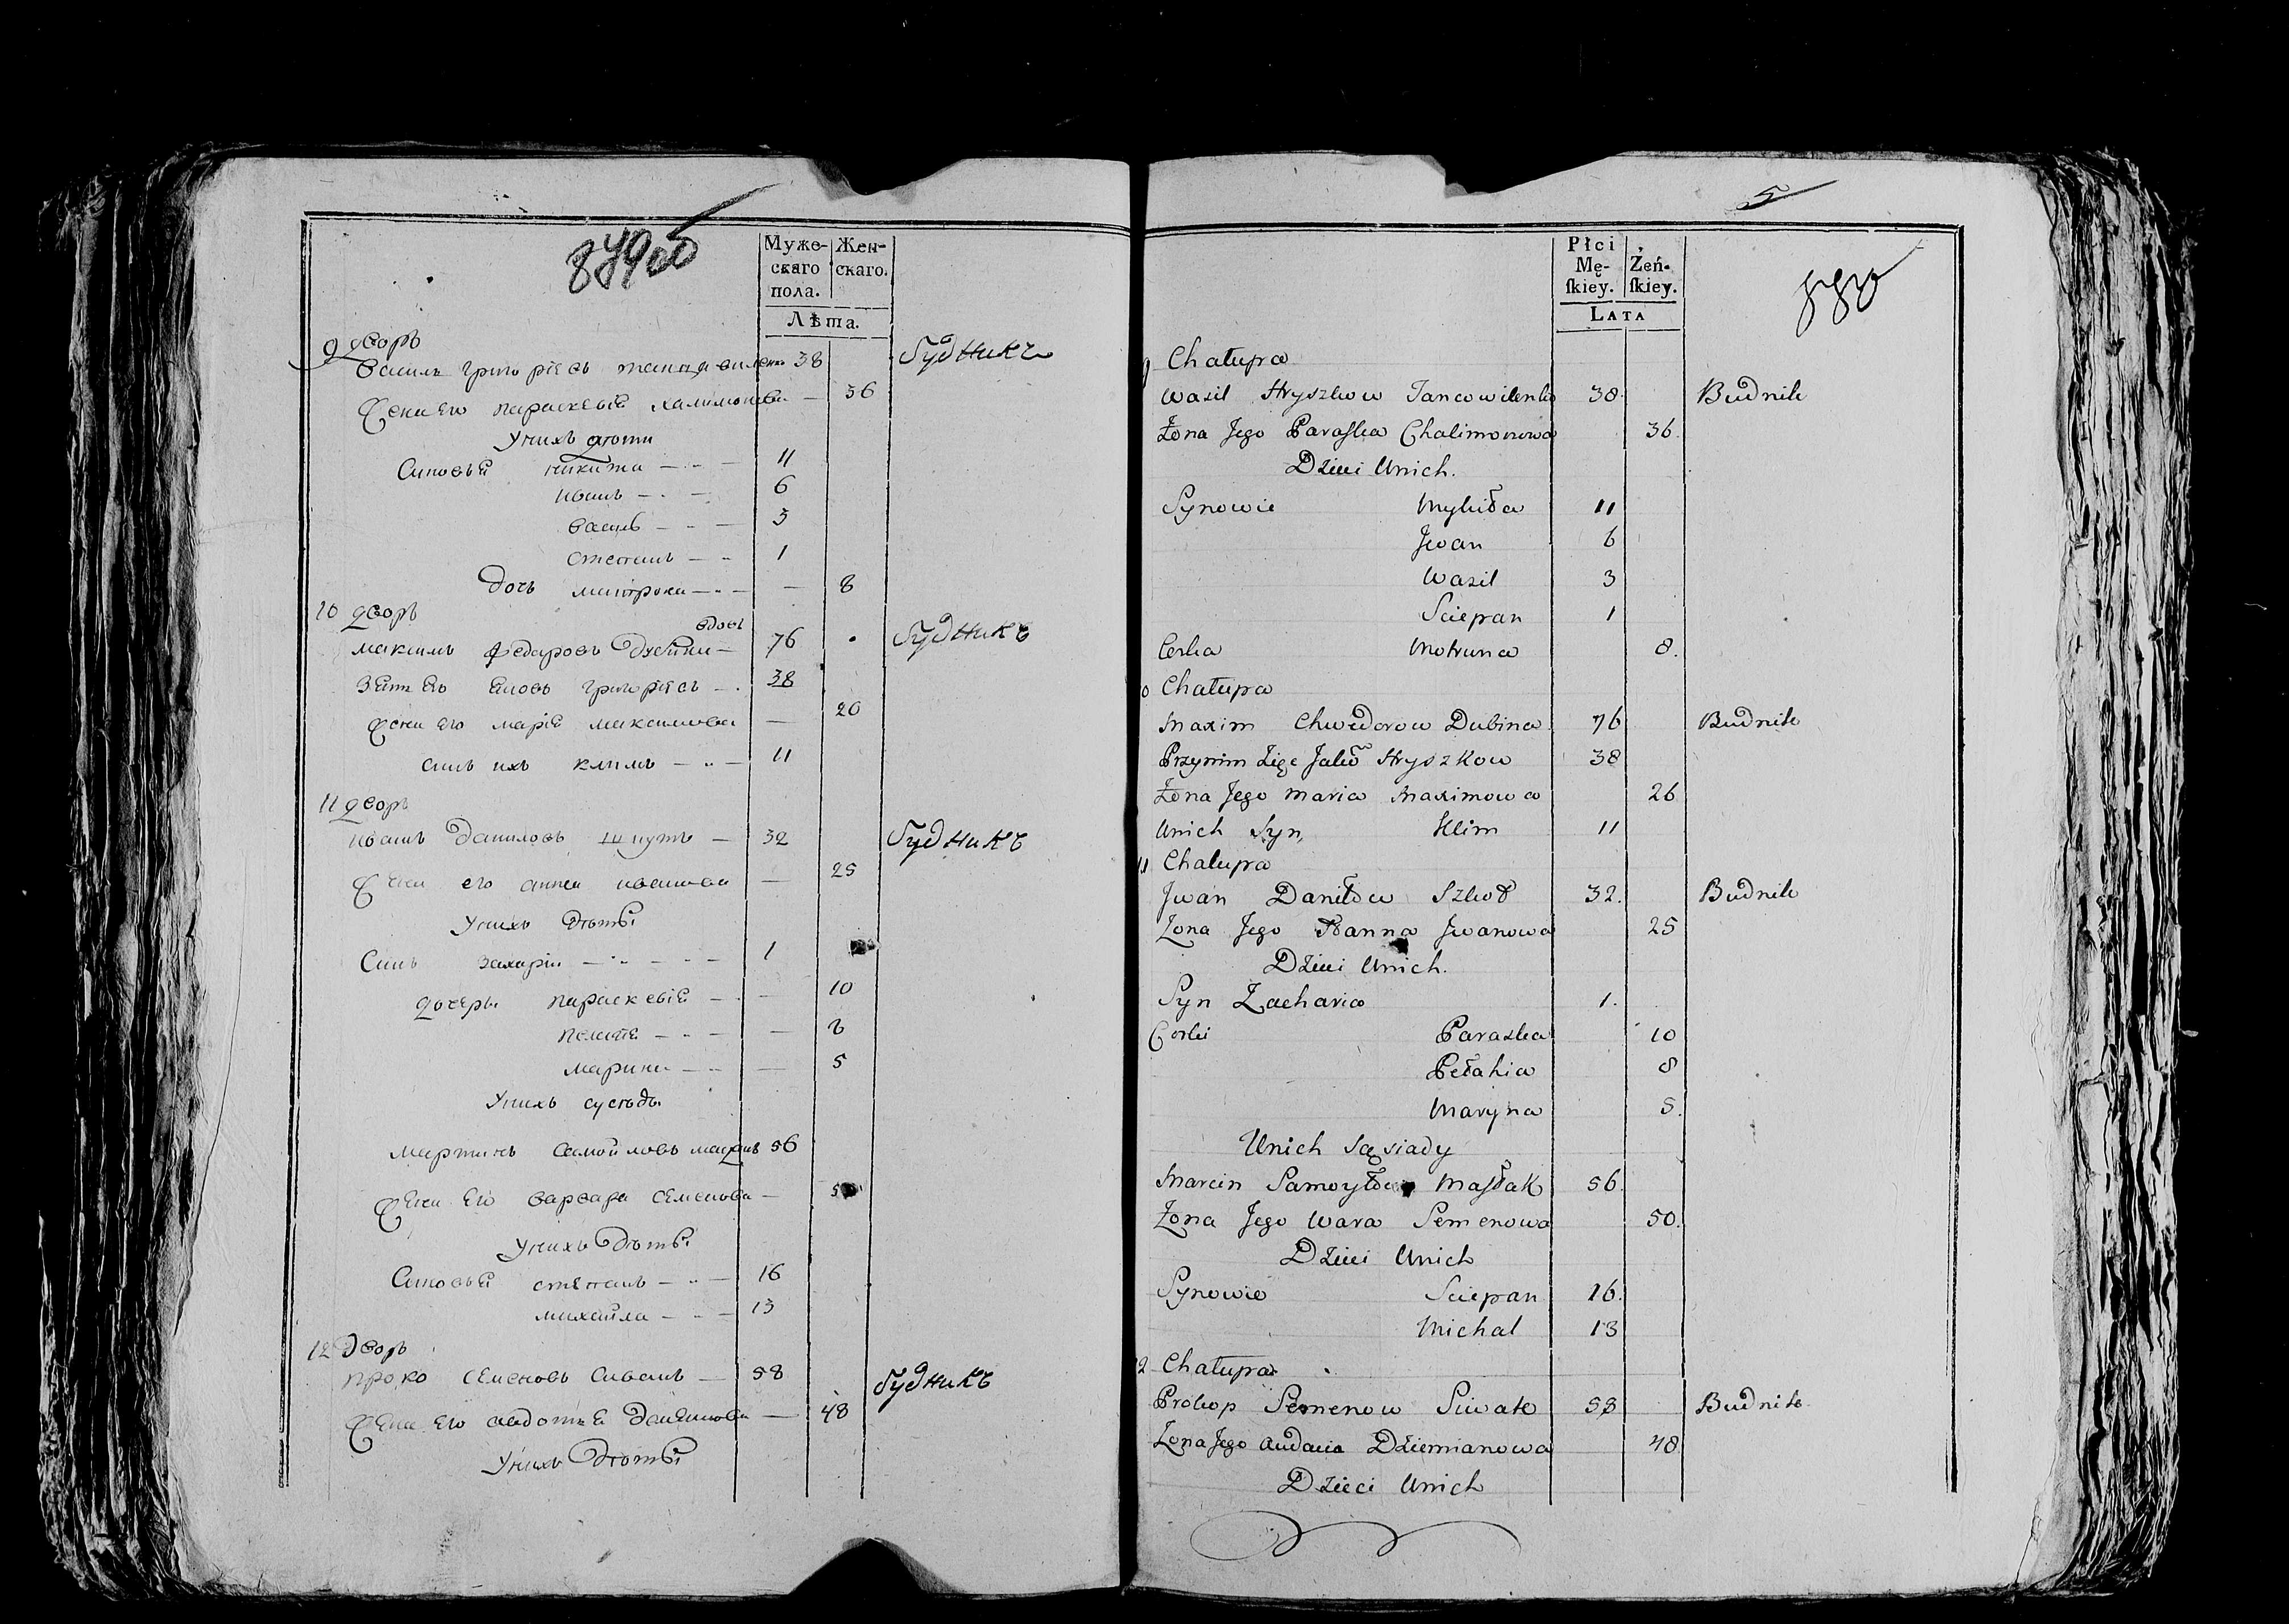 879об
Муже-
скаго
пола.
Жен-
скаго.
Лѣта.
9 дворъ
Василь Григорiевъ 38 Будникъ
Жена Его Параскевiя Халимонова — 36
У нихъ дѣти
Синовья Никита — 11
Иванъ — 6
Василь — 3
Степанъ — 1
Дочь Матрона — 8
10 дворъ
вдовъ
Максимъ Федоровъ Дубина — 76 Будникъ
Зять Его Яковъ Григорiевъ — 38
Жена Его Марiя Максимова — 26
Синъ ихъ Климъ — 11
11 дворъ
Иванъ Даниловъ — 32 Будникъ
Жена его Анна Иванова — 25
У нихъ Дѣти
Синъ Захарiя — 1
дочеры Параскевiя — 10
Пелагiя — 8
Марина — 5
У нихъ сусѣды
Мартинъ Самойловъ 56
Жена Его Варвара Семенова —
У нихъ Дѣти
Синовья Степанъ — 16
Михайла — 13
12 Дворъ
Проко Семеновъ Сивакъ — 58 Будникъ
Жена Его Авдотья Демянова — 48
У нихъ Дѣти
5
880
Płci
Mę-
skiey.
Żeń-
skiey.
LATA
9 Chałupa
Wasil Hryszkow Jancowilenko 38 Budnik
Żona Jego Paraska Chalimonowa 36
Dzieci Unich.
Synowie Mykiła 11
Jwan 6
Wasil 3
Sciepan 1
Corka Motruna 8.
10 Chałupa
Maxim Chwedorow Dubina 76 Budnik
Hryszkow 38
Żona Jego Maria Maximowa 26
Unich Syn, Klim 11
11 Chałupa
Jwan Daniłow 32. Budnik
Żona Jego Hanna Jwanowa 25
Dzieci Unich.
Syn Zacharia 1.
Corki Paraska 10
Pełahia 8
Maryna 5.
Unich Sąsiady
Marcin Samoyłow Mastak 56.
Żona Jego Wara Semenowa 50.
Dzieci Unich
Synowie Sciepan 16.
Michal 13
12 Chałupa
Prokop Semenow Siwak 58 Budnik
Żona Jego Audocia Dziemianowa 48
Dzieci Unich